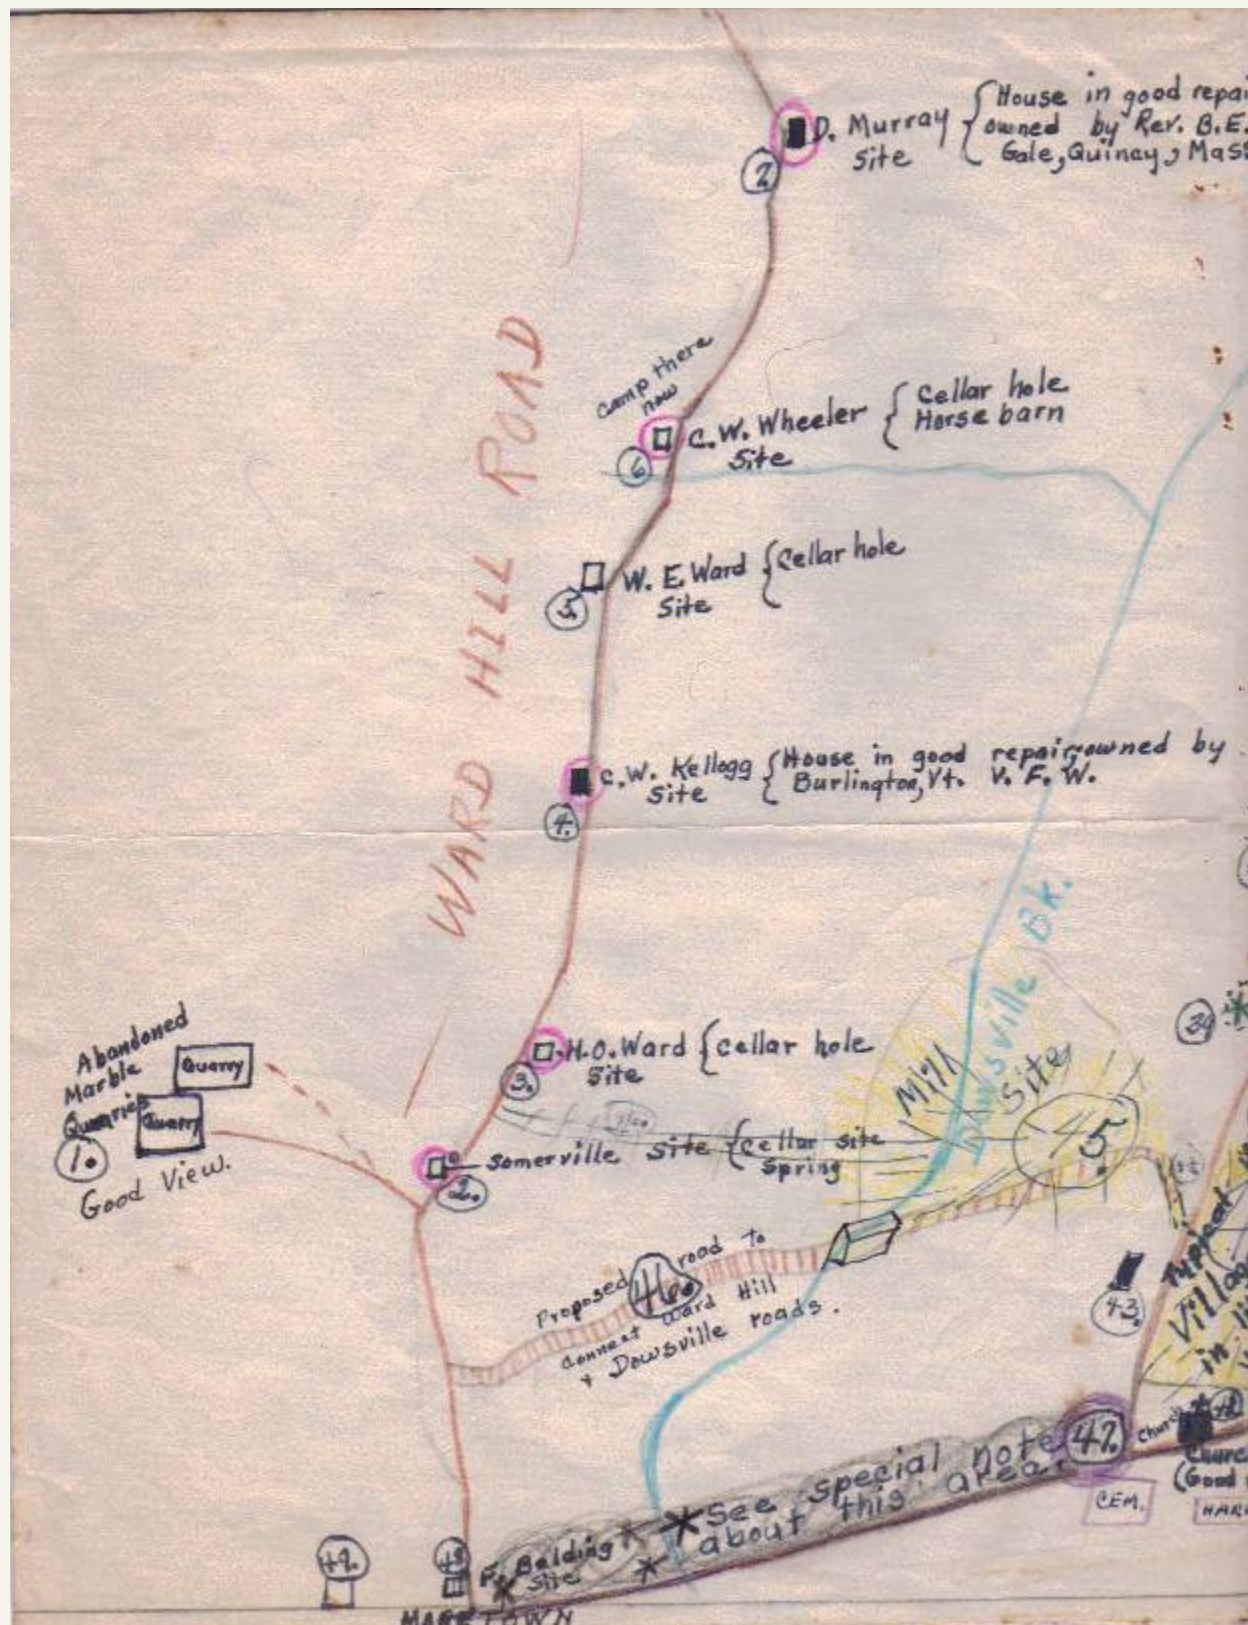 D. Murray Site
7
House in good repai
owned by Rev. B.E.
Gale, Quincy, Mass
WARD HILL ROAD
Camp there
now
C.W. Wheeler
Site
6
Cellar hole
Horse barn
W. E. Ward
Site
5.
Cellar hole
C.W. Kellogg
Site
4.
House in good repair, owned by
Burlington, Vt. V. F. W.
Dowsville Bk.
H.O. Ward
Site
3.
Cellar hole
Abandoned
Marble
Quarries
Quarry
Quarry
1.
Good View.
Somerville Site
2.
Cellar site
Spring
Mill
Site
45.
39
Proposed road to
46.
Connect Ward Hill
& Dowsville roads.
43.
Typical
Village
in
47.
See special note
about this area.
Church
42
Churc
(Good
CEM.
HAR
49.
48
F. Belding
Site